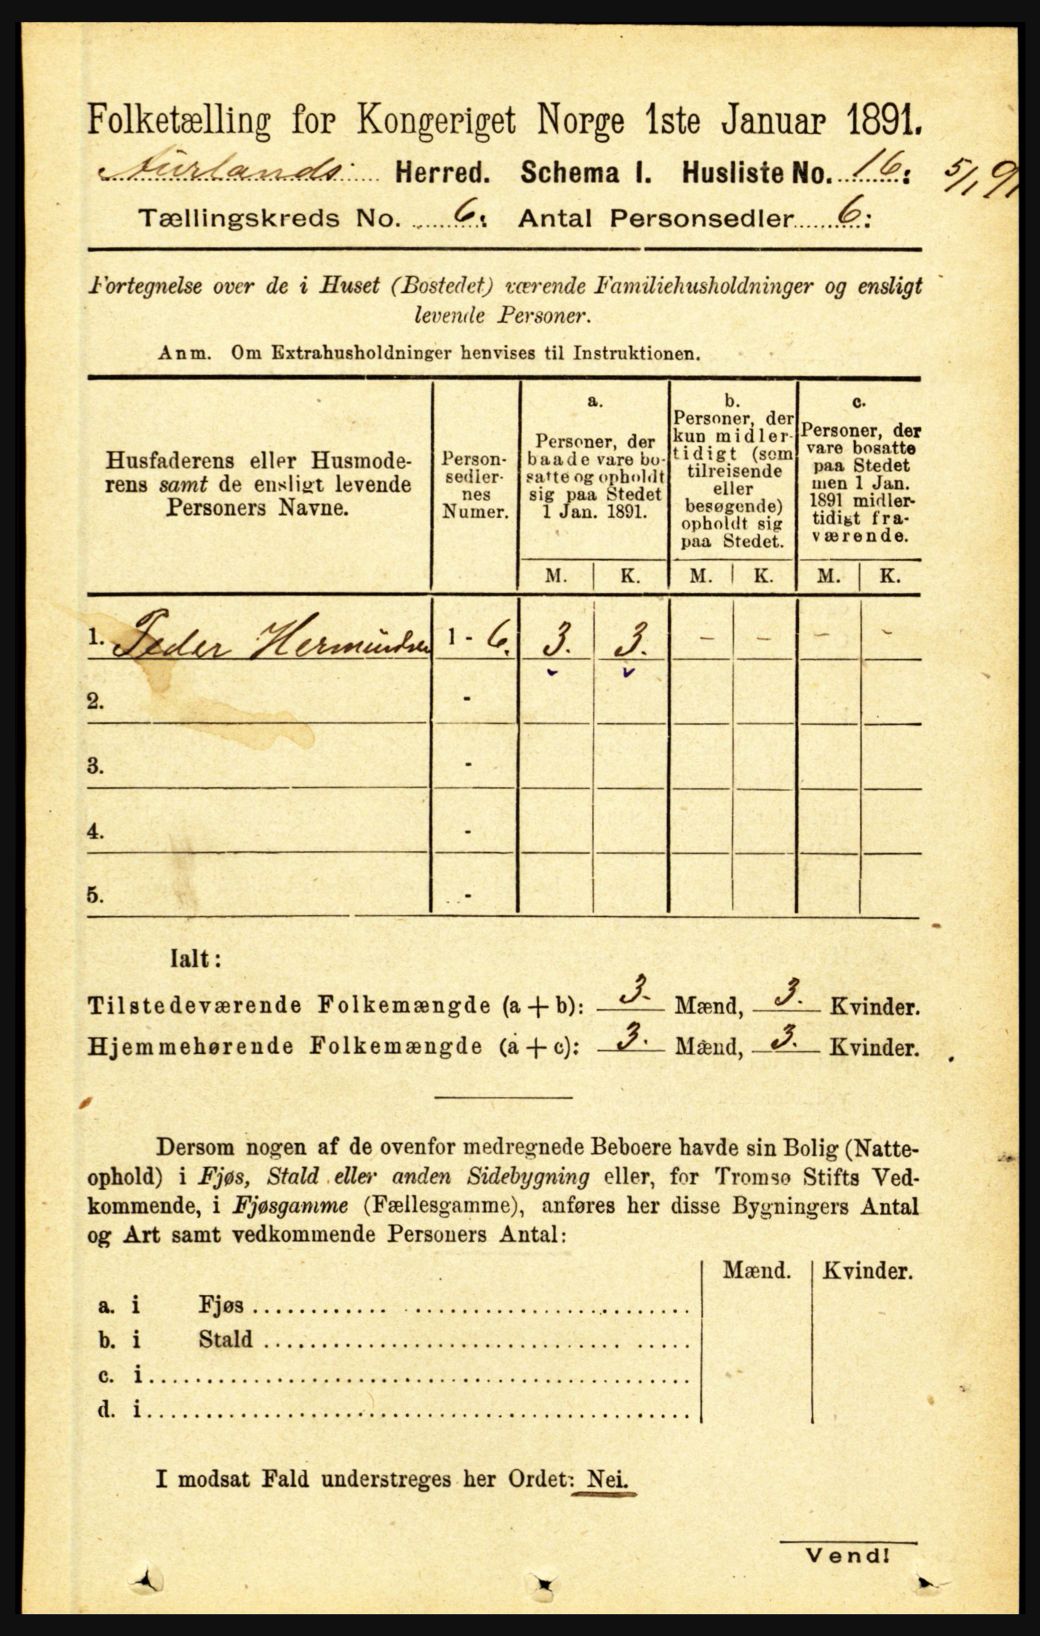 Folketælling for Kongeriget Norge 1ste Januar 1891.
Aurlands Herred. Schema I. Husliste No. 16: 5/1 91
Tællingskreds No. 6: Antal Personsedler 6:
Fortegnelse over de i Huset (Bostedet) værende Familiehusholdninger og ensligt
levende Personer.
Anm. Om Extrahusholdninger henvises til Instruktionen.
Husfaderens eller Husmode-
rens samt de ensligt levende
Personers Navne.
Person-
sedler-
nes
Numer.
a.
Personer, der
baade vare bo-
satte og opholdt
sig paa Stedet
1 Jan. 1891.
b.
Personer, der
kun midler-
tidigt (som
tilreisende
eller
besøgende)
opholdt sig
paa Stedet.
c.
Personer, der
vare bosatte
paa Stedet
men 1 Jan.
1891 midler-
tidigt fra-
værende.
M. K. M. K. M. K.
1. Peder Hermundsen 1 - 6. 3. 3. - - - -
2. -
3. -
4. -
5. -
Ialt:
Tilstedeværende Folkemængde (a + b): 3. Mænd, 3. Kvinder.
Hjemmehørende Folkemængde (a + c): 3. Mænd, 3. Kvinder.
Dersom nogen af de ovenfor medregnede Beboere havde sin Bolig (Natte-
ophold) i Fjøs, Stald eller anden Sidebygning eller, for Tromsø Stifts Ved-
kommende, i Fjøsgamme (Fællesgamme), anføres her disse Bygningers Antal
og Art samt vedkommende Personers Antal:
Mænd. Kvinder.
a. i Fjøs
b. i Stald
c. i
d. i
I modsat Fald understreges her Ordet: Nei.
Vend!